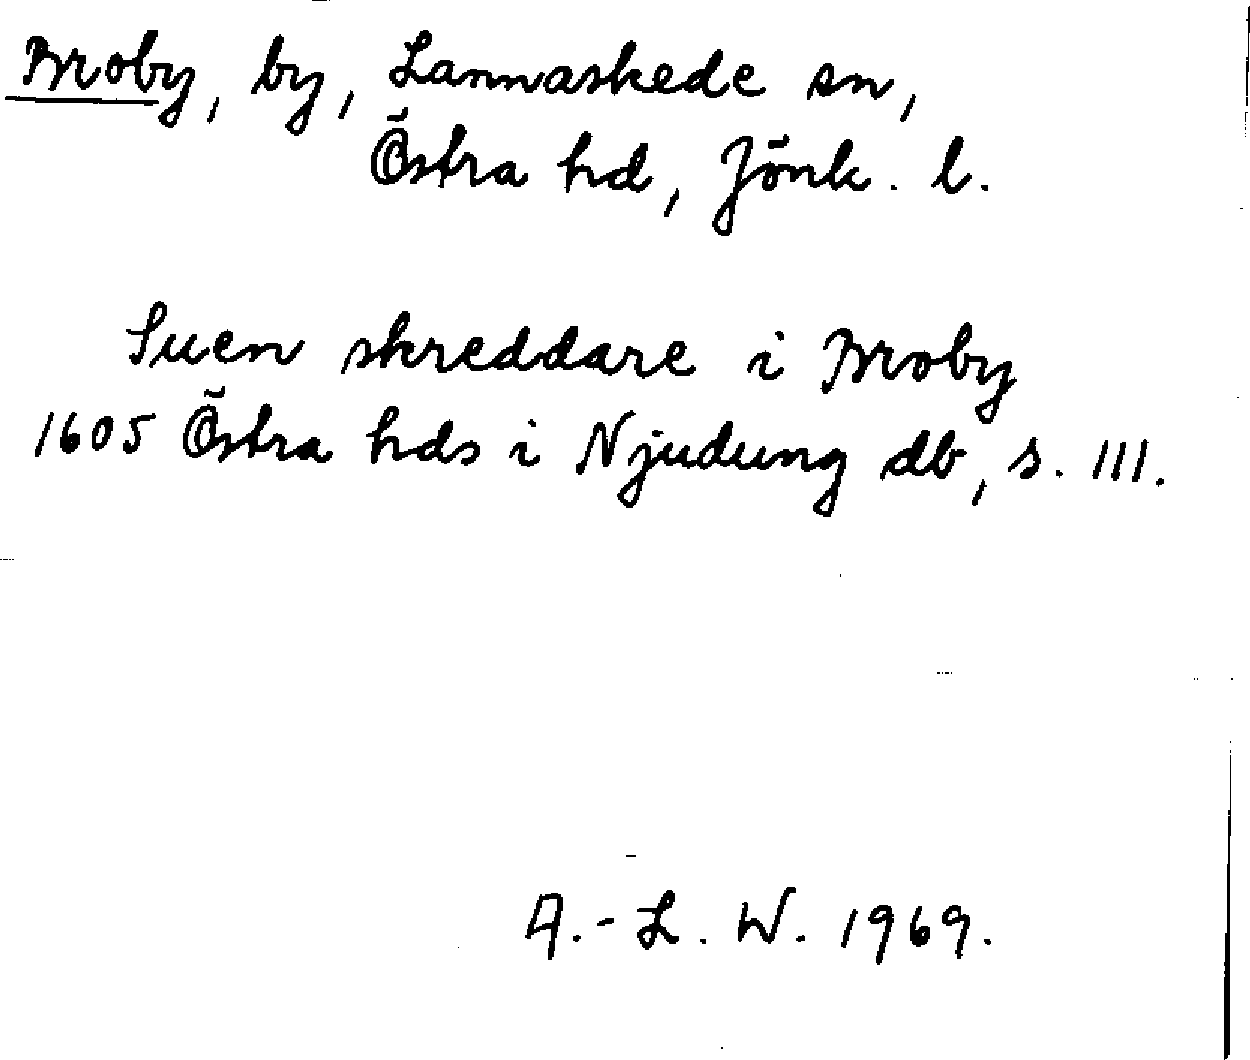 Broby, by, Lannaskede sn,
Östra hd, Jönk. l.
Suen skreddare i Broby
1605 Östra hds i Njudung db, s. 111.
A.-L. W. 1969.